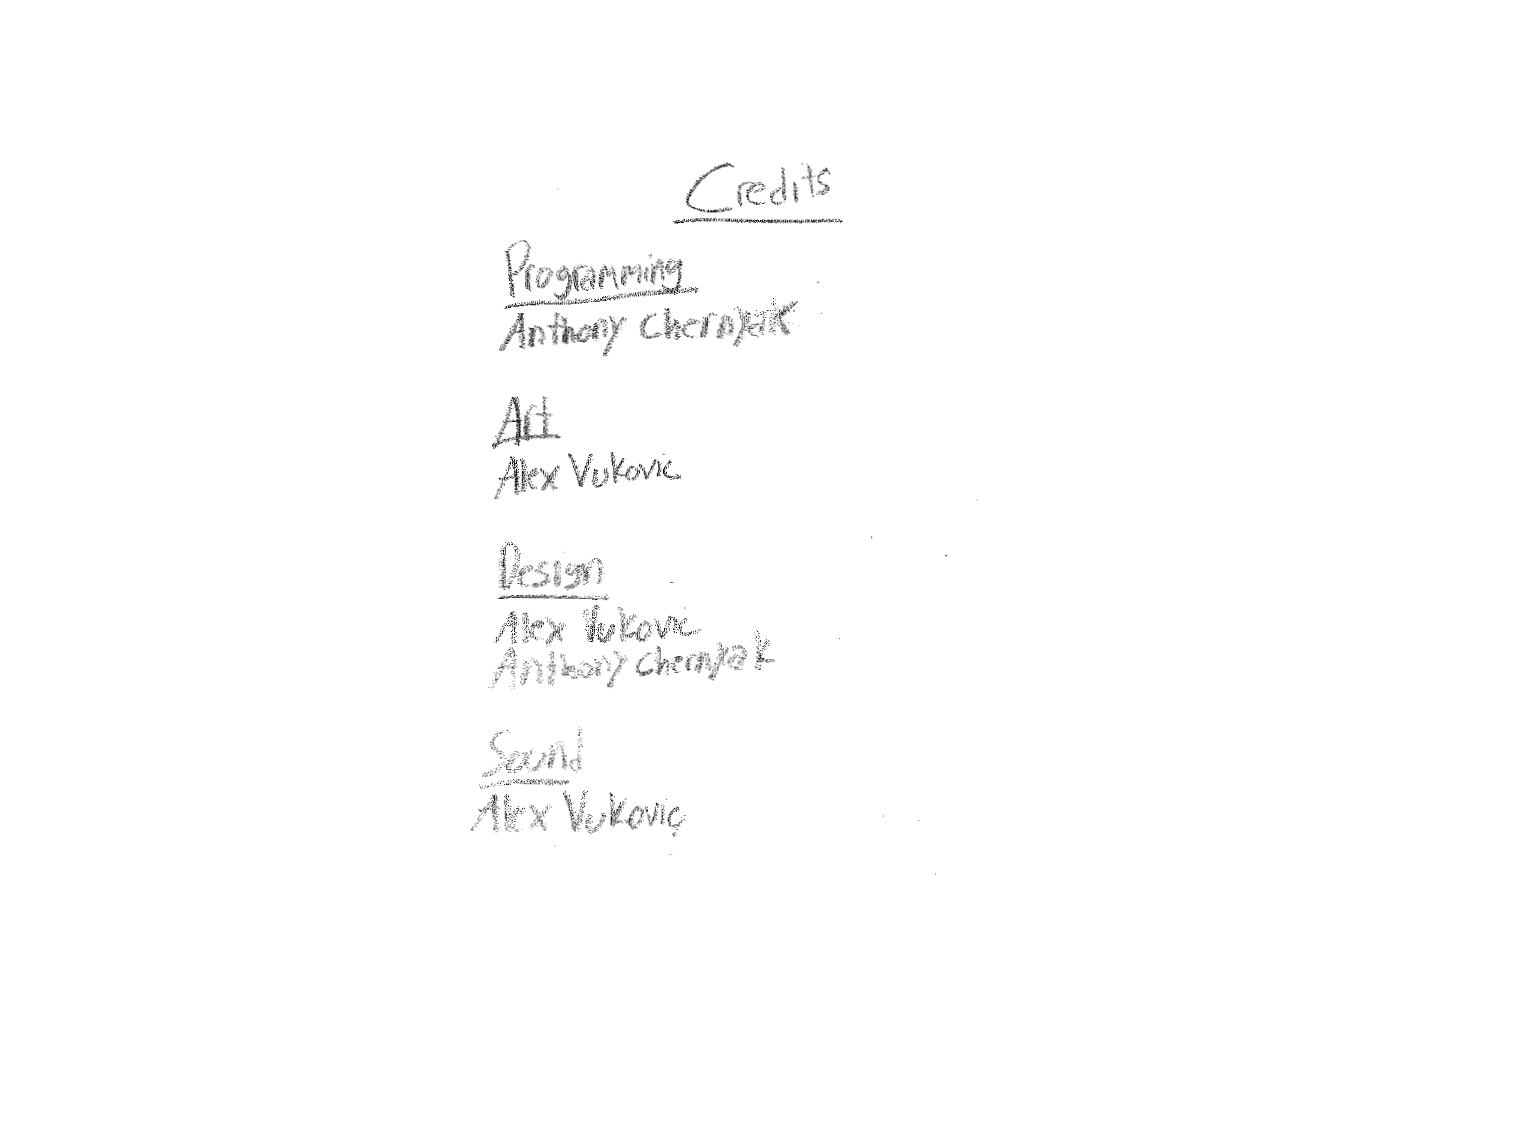 Credits
Programming
Anthony Chernyak
Art
Alex Vukovic
Design
Alex Vukovic
Anthony Chernyak
Sound
Alex Vukovic